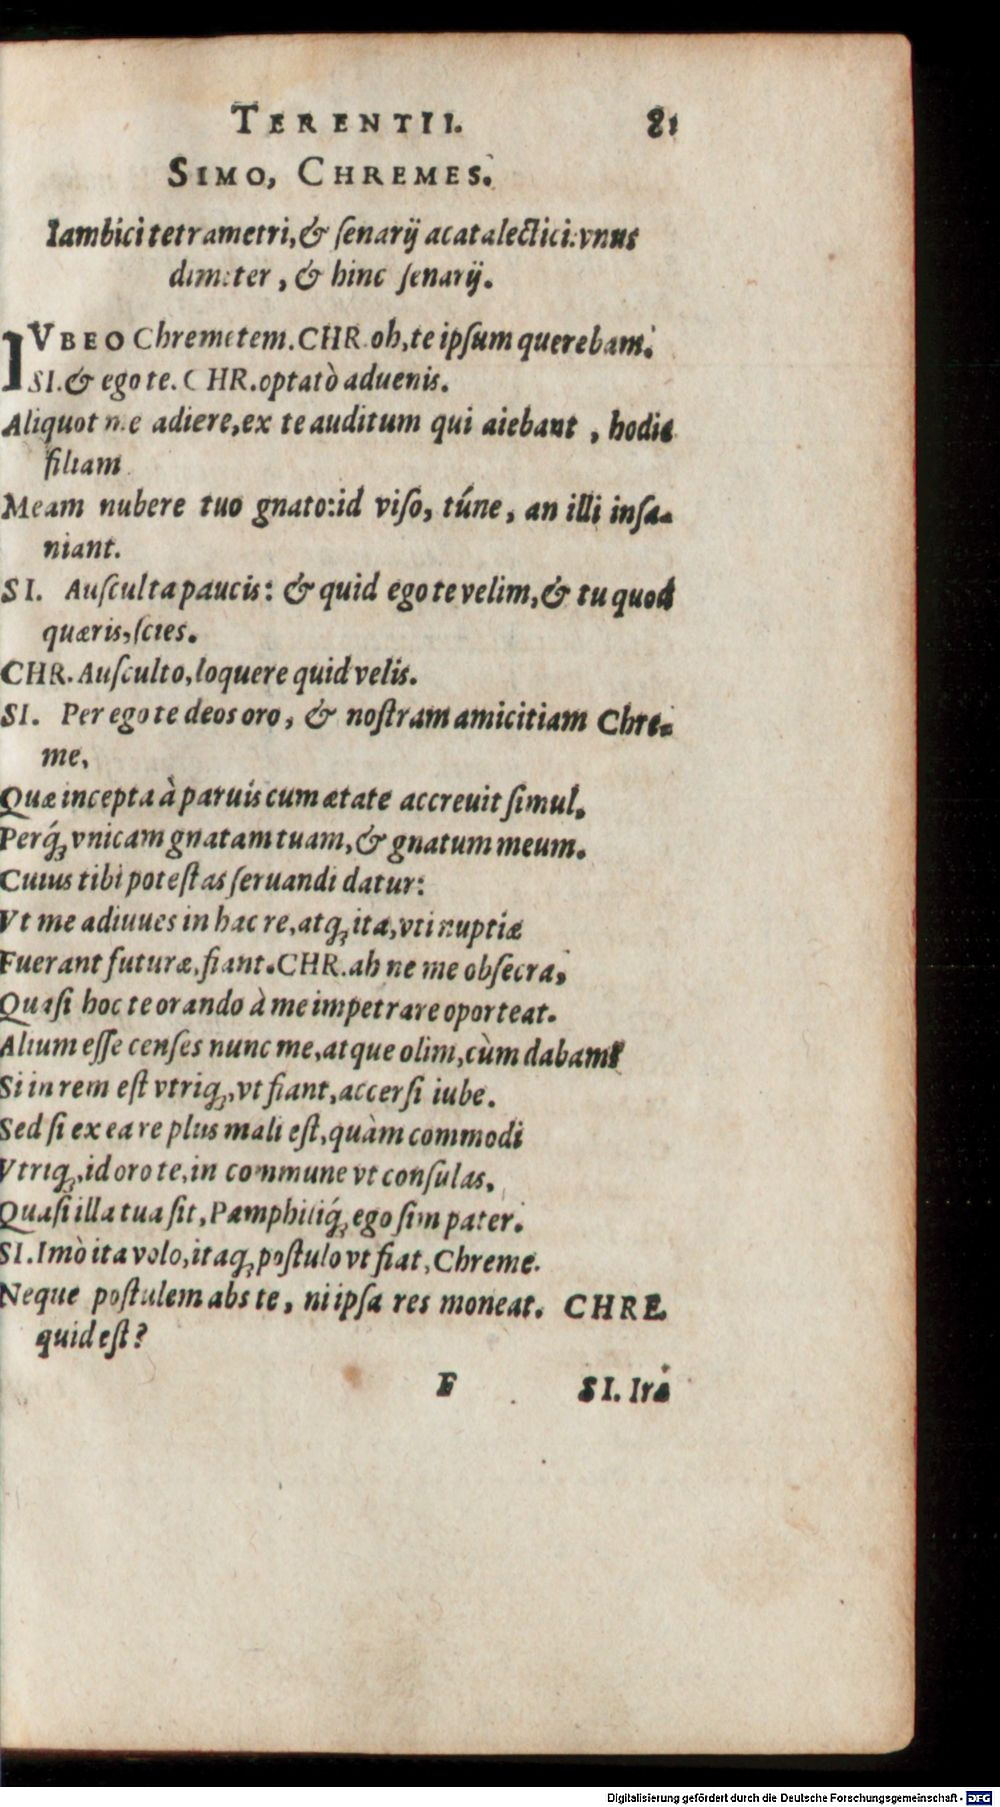 TERENTII. 81
SIMO, CHREMES.
Iambici tetrametri, & ſenarij acatalectici: vnus
dimeter, & hinc ſenarij.
IVBEO Chremetem. CHR. oh, te ipſum querebam.
SI. & ego te. CHR. optatò aduenis.
Aliquot me adiere, ex te auditum qui aiebant, hodie
filiam
Meam nubere tuo gnato: id viſo, túne, an illi inſa-
niant.
SI. Auſculta paucis: & quid ego te velim, & tu quod
quæris, ſcies.
CHR. Auſculto, loquere quid velis.
SI. Per ego te deos oro, & noſtram amicitiam Chre-
me,
Quæ incepta à paruis cum ætate accreuit ſimul,
Perq́ꝫ vnicam gnatam tuam, & gnatum meum.
Cuius tibi poteſtas ſeruandi datur:
Vt me adiuues in hac re, atqꝫ ita, vti nuptiæ
Fuerant futuræ, fiant. CHR. ah ne me obſecra,
Quaſi hoc te orando à me impetrare oporteat.
Alium eſſe cenſes nunc me, atque olim, cùm dabam?
Si in rem eſt vtriqꝫ, vt fiant, accerſi iube.
Sed ſi ex ea re plus mali eſt, quàm commodi
Vtriqꝫ, id oro te, in commune vt conſulas,
Quaſi illa tua ſit, Pamphiliq́ꝫ ego ſim pater.
SI. Imò ita volo, itaqꝫ poſtulo vt fiat, Chreme.
Neque poſtulem abs te, ni ipſa res moneat. CHRE.
quid eſt?
F SI. Iræ
Digitalisierung gefördert durch die Deutsche Forschungsgemeinschaft - DFG